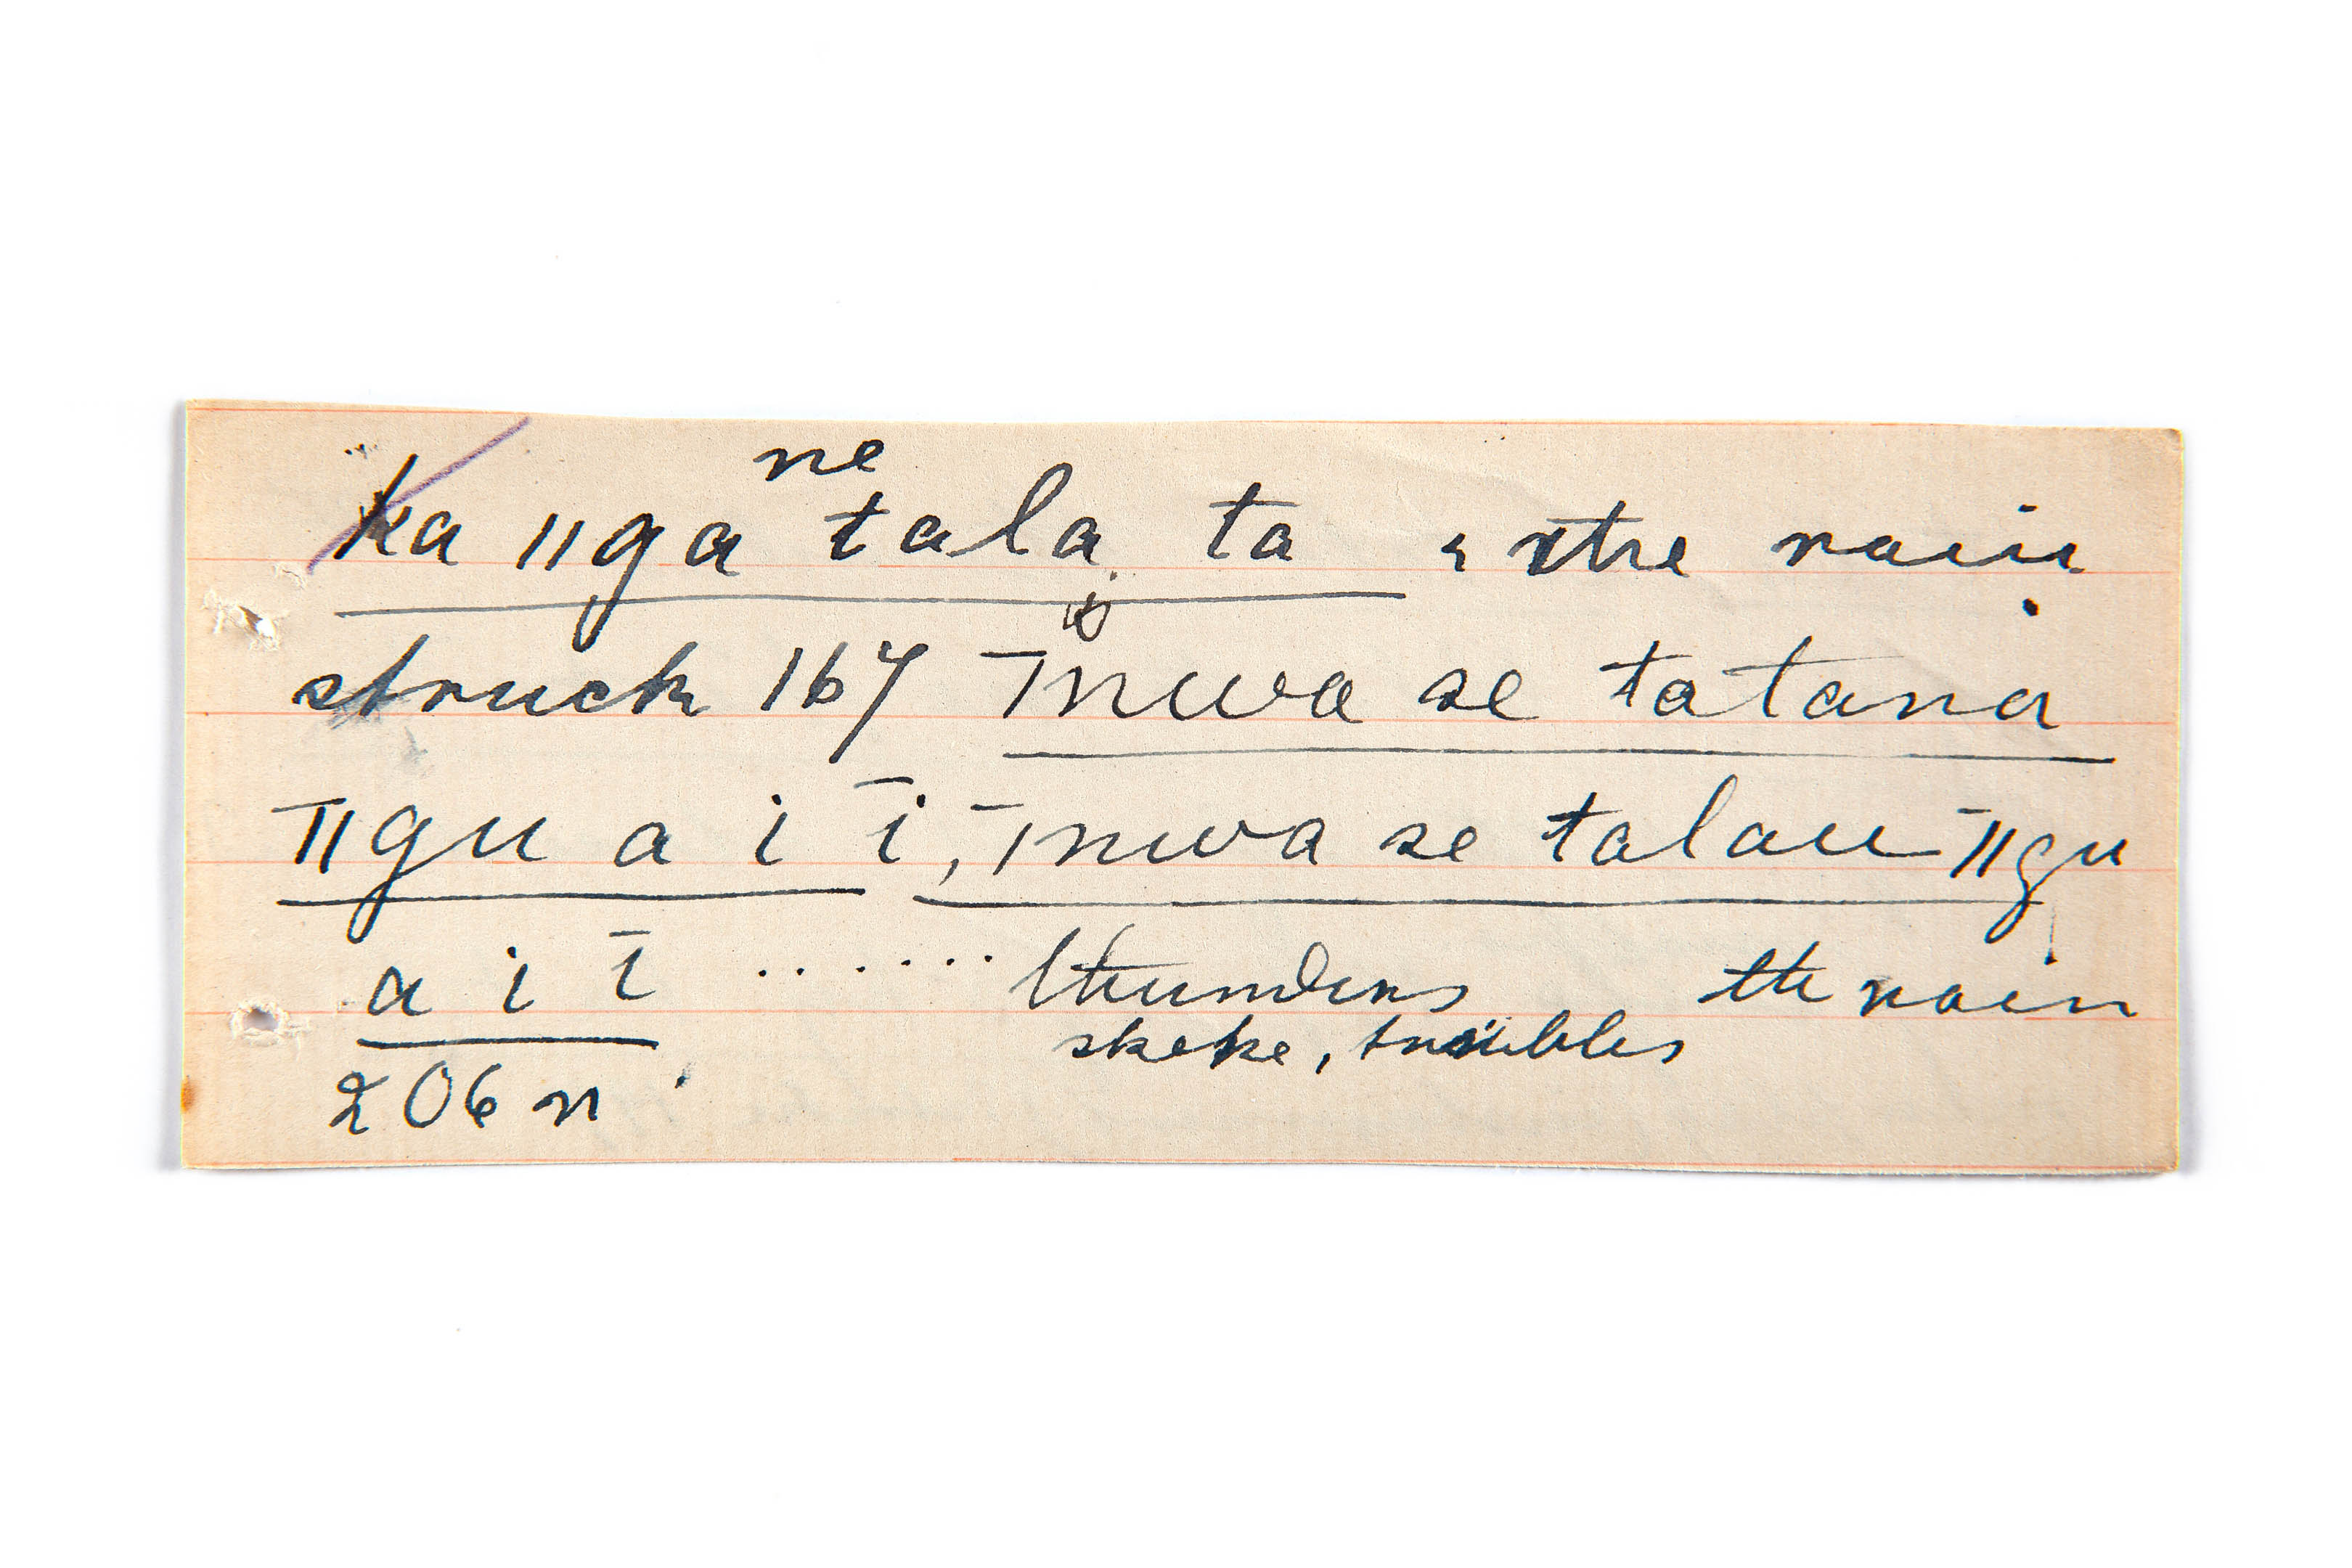 ne
ka ǁga tala ta & the rain
struck 167 ˉ|nwa se tatana
ˉǁgu a i ī, ˉ|nwa se talau ˉǁgu
a i ī ....... thunders the rain
shake, trembles
206 n